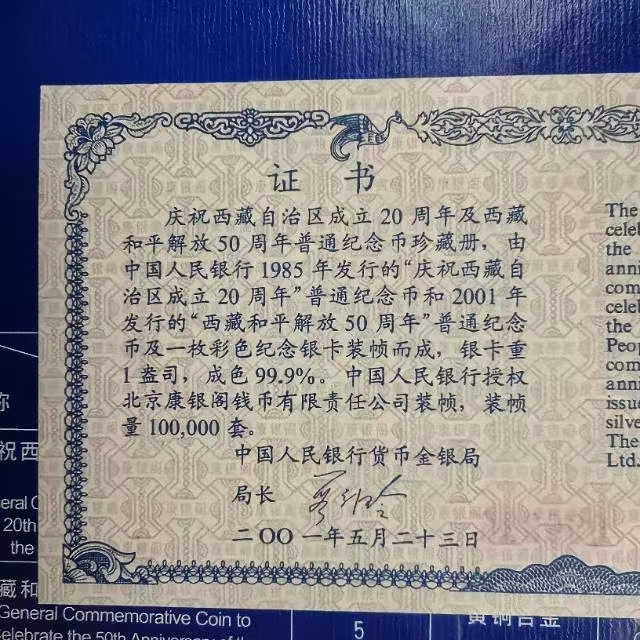 证 书
庆祝西藏自治区成立 20 周年及西藏
和平解放 50 周年普通纪念币珍藏册，由
中国人民银行 1985 年发行的“庆祝西藏自
治区成立 20 周年”普通纪念币和 2001 年
发行的“西藏和平解放 50 周年”普通纪念
币及一枚彩色纪念银卡装帧而成，银卡重
1 盎司，成色 99.9%。中国人民银行授权
北京康银阁钱币有限责任公司装帧，装帧
量 100,000 套。
中国人民银行货币金银局
局长
二OO一年五月二十三日
The
celeb
the
anni
com
celeb
the
Peop
com
anni
issue
silve
The
Ltd.
称
祝西
eral C
20th
the
藏和
General Commemorative Coin to
Celebrate the 50th Anniversary of the
5
黄铜合金